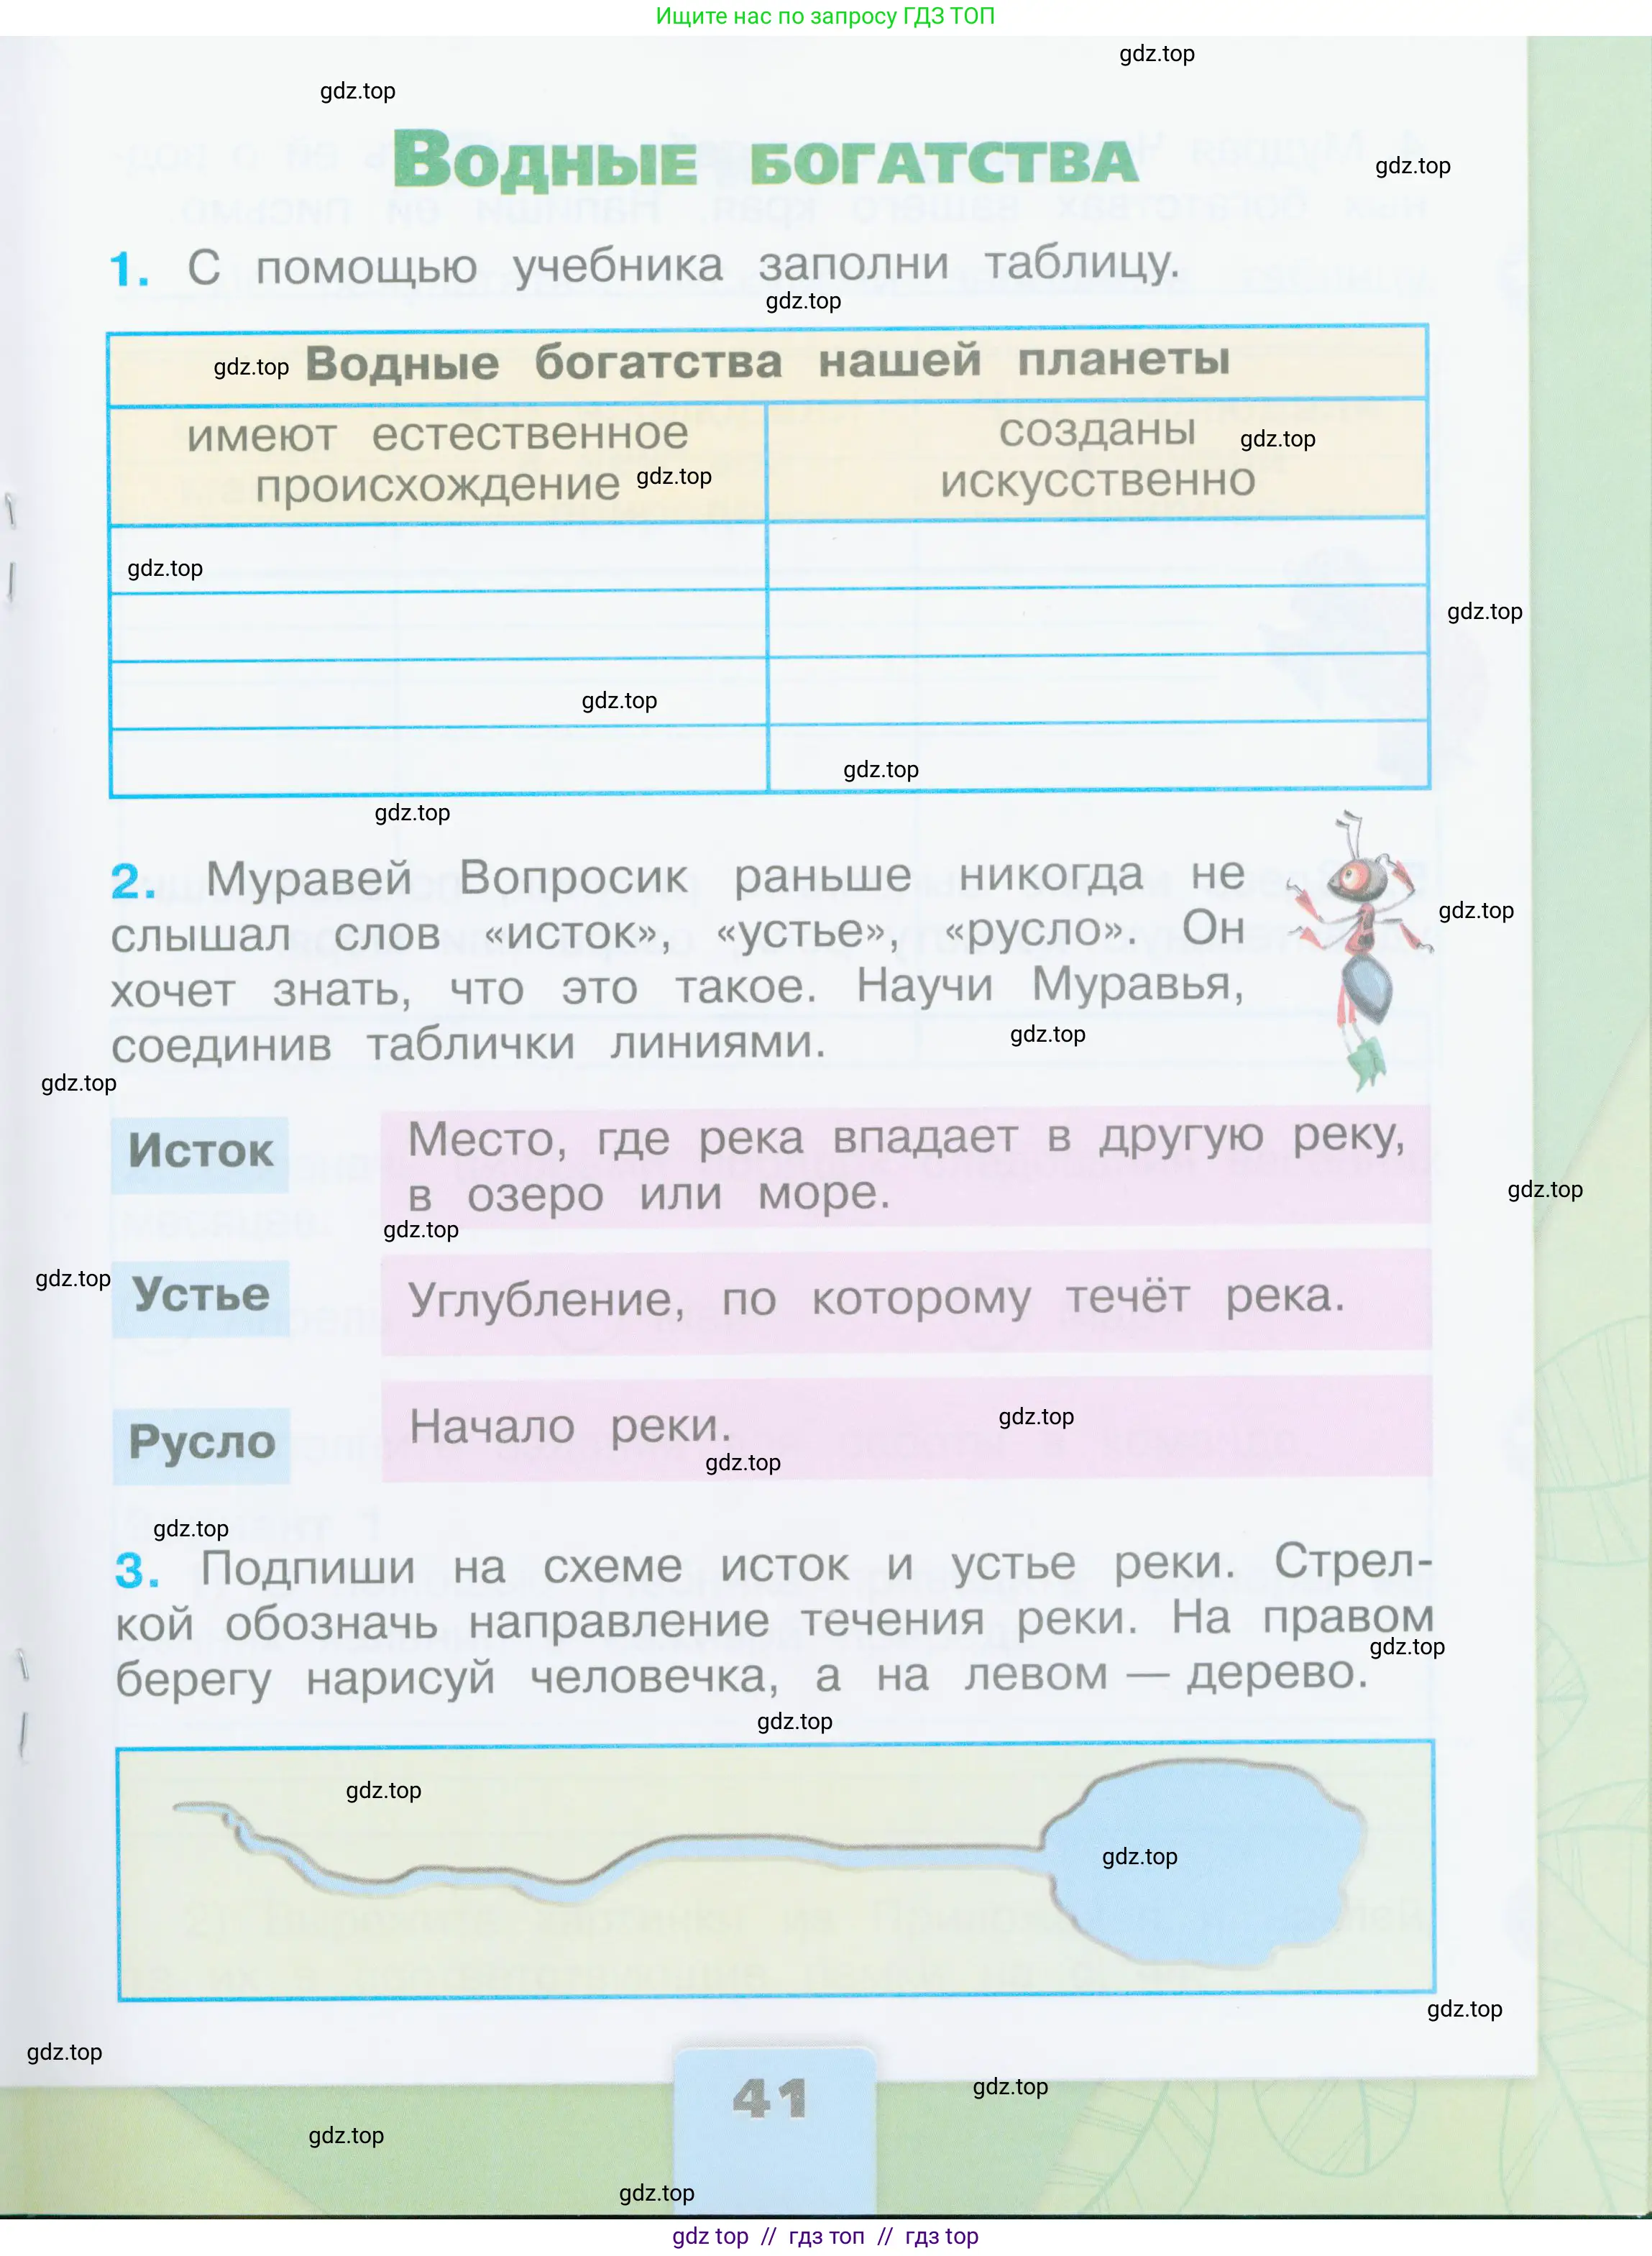 Ищите нас по запросу ГДЗ ТОП
gdz.top
gdz.top
Водные богатства
gdz.top
1. С помощью учебника заполни таблицу.
gdz.top
gdz.top Водные богатства нашей планеты
имеют естественное
происхождение gdz.top
созданы gdz.top
искусственно
gdz.top
gdz.top
gdz.top
gdz.top
gdz.top
2. Муравей Вопросик раньше никогда не
gdz.top
слышал слов «исток», «устье», «русло». Он
хочет знать, что это такое. Научи Муравья,
соединив таблички линиями.
gdz.top
gdz.top
Исток
Место, где река впадает в другую реку,
в озеро или море.
gdz.top
gdz.top
gdz.top
Устье
Углубление, по которому течёт река.
Русло
Начало реки.
gdz.top
gdz.top
gdz.top
3. Подпиши на схеме исток и устье реки. Стрел-
кой обозначь направление течения реки. На правом
gdz.top
берегу нарисуй человечка, а на левом — дерево.
gdz.top
gdz.top
gdz.top
gdz.top
gdz.top
41
gdz.top
gdz.top
gdz.top
gdz top // гдз топ // гдз top